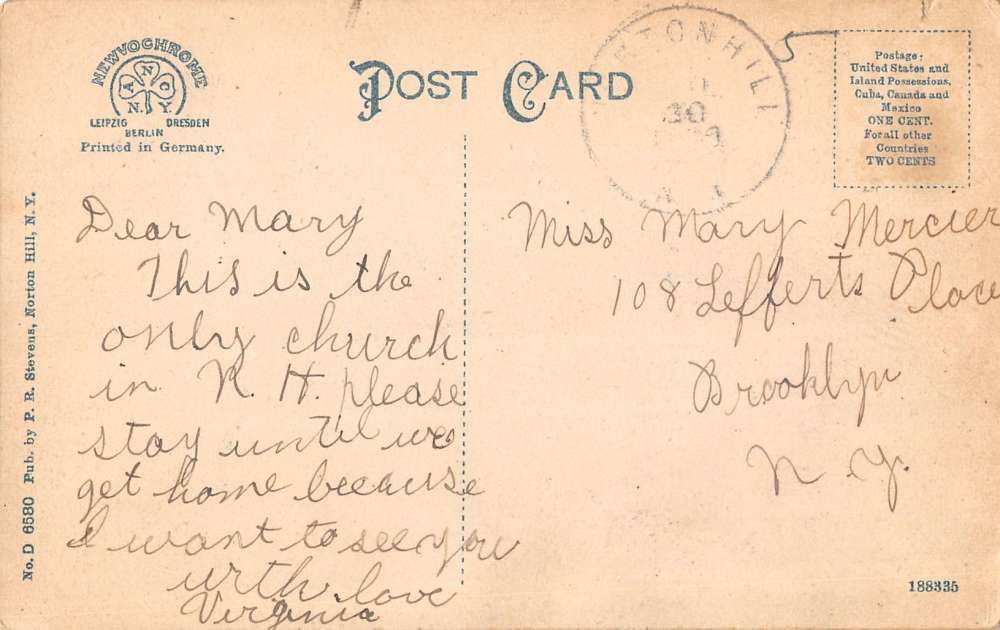 NEWVOCHROME
A N C
N. Y.
LEIPZIG DRESDEN
BERLIN
Printed in Germany.
POST CARD
TONHILL
30
N Y
Postage:
United States and
Island Possessions,
Cuba, Canada and
Mexico
ONE CENT.
For all other
Countries
TWO CENTS
No. D 6580 Pub. by P. R. Stevens, Norton Hill, N. Y.
Dear Mary
This is the
only church
in N. H. please
stay until we
get home because
I want to see you
with love
Virginia
Miss Mary Mercier
108 Lefferts Place
Brooklyn
N. Y.
188335